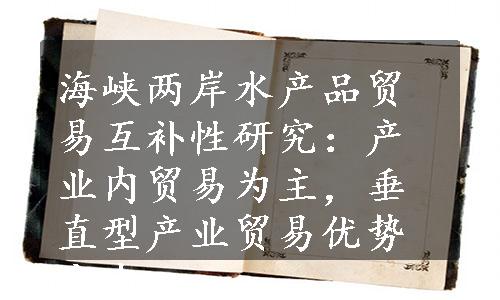 海峡两岸水产品贸
易互补性研究：产
业内贸易为主，垂
直型产业贸易优势